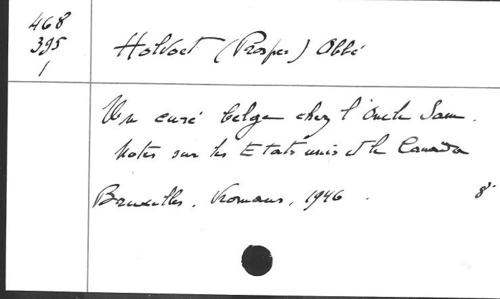 468
395
1
Holvoet (Prosper) Abbé
Un curé belge chez l'Oncle Sam.
Notes sur les Etats unis et le Canada
Bruxelles. Vromans, 1946. 8°